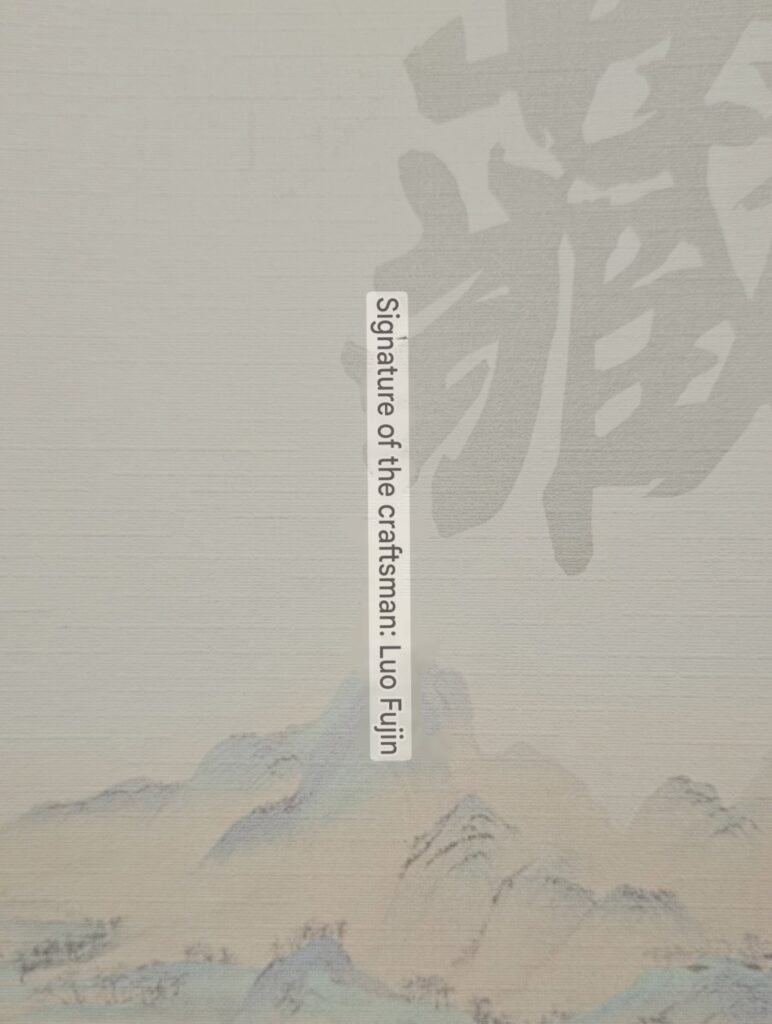 藏
Signature of the craftsman: Luo Fujin